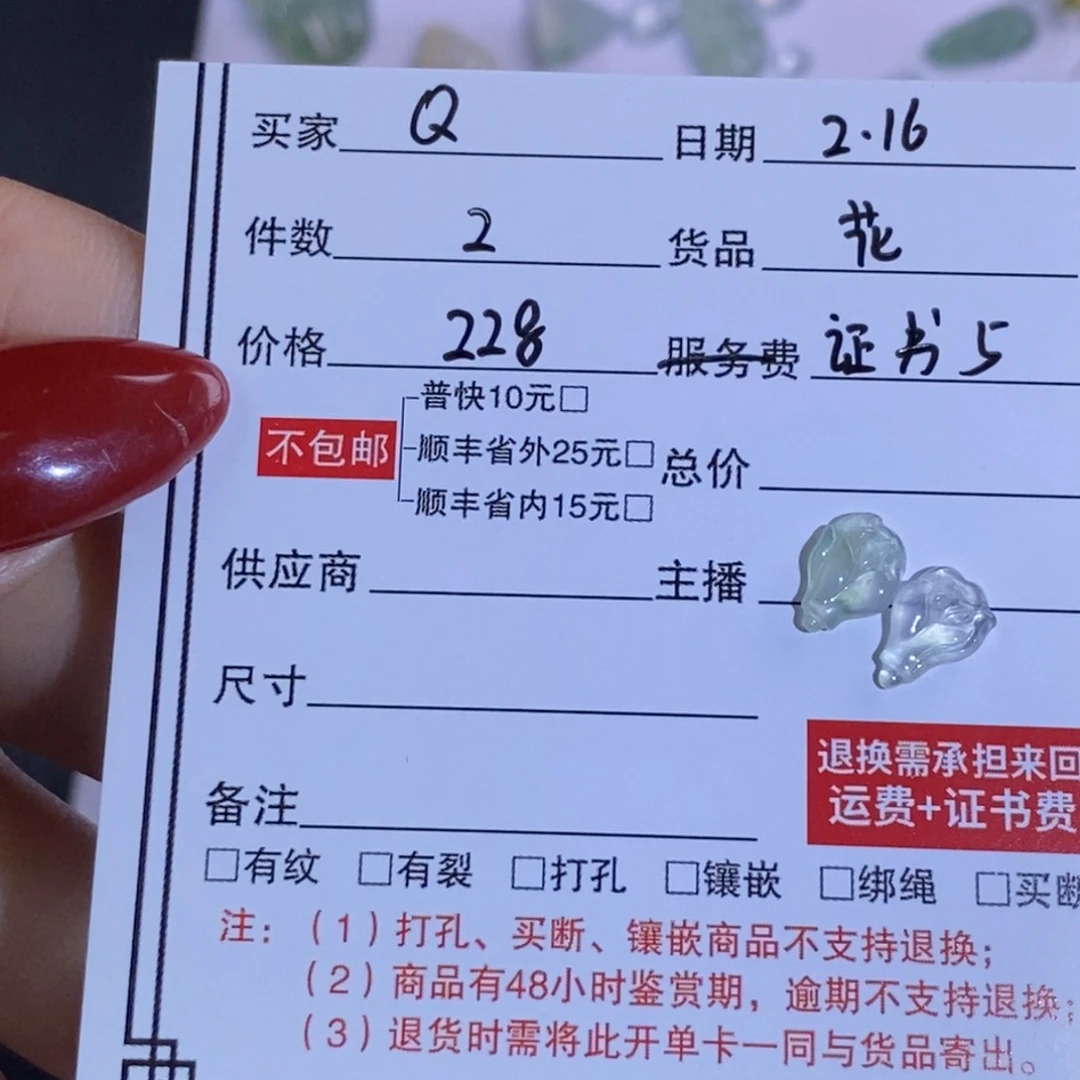 买家 Q 日期 2.16
件数 2 货品 花
价格 228 服务费 证书5
普快10元□
不包邮 顺丰省外25元□ 总价
顺丰省内15元□
供应商 主播
尺寸
退换需承担来回
运费+证书费
备注
□有纹 □有裂 □打孔 □镶嵌 □绑绳 □买断
注：（1）打孔、买断、镶嵌商品不支持退换；
（2）商品有48小时鉴赏期，逾期不支持退换；
（3）退货时需将此开单卡一同与货品寄出。